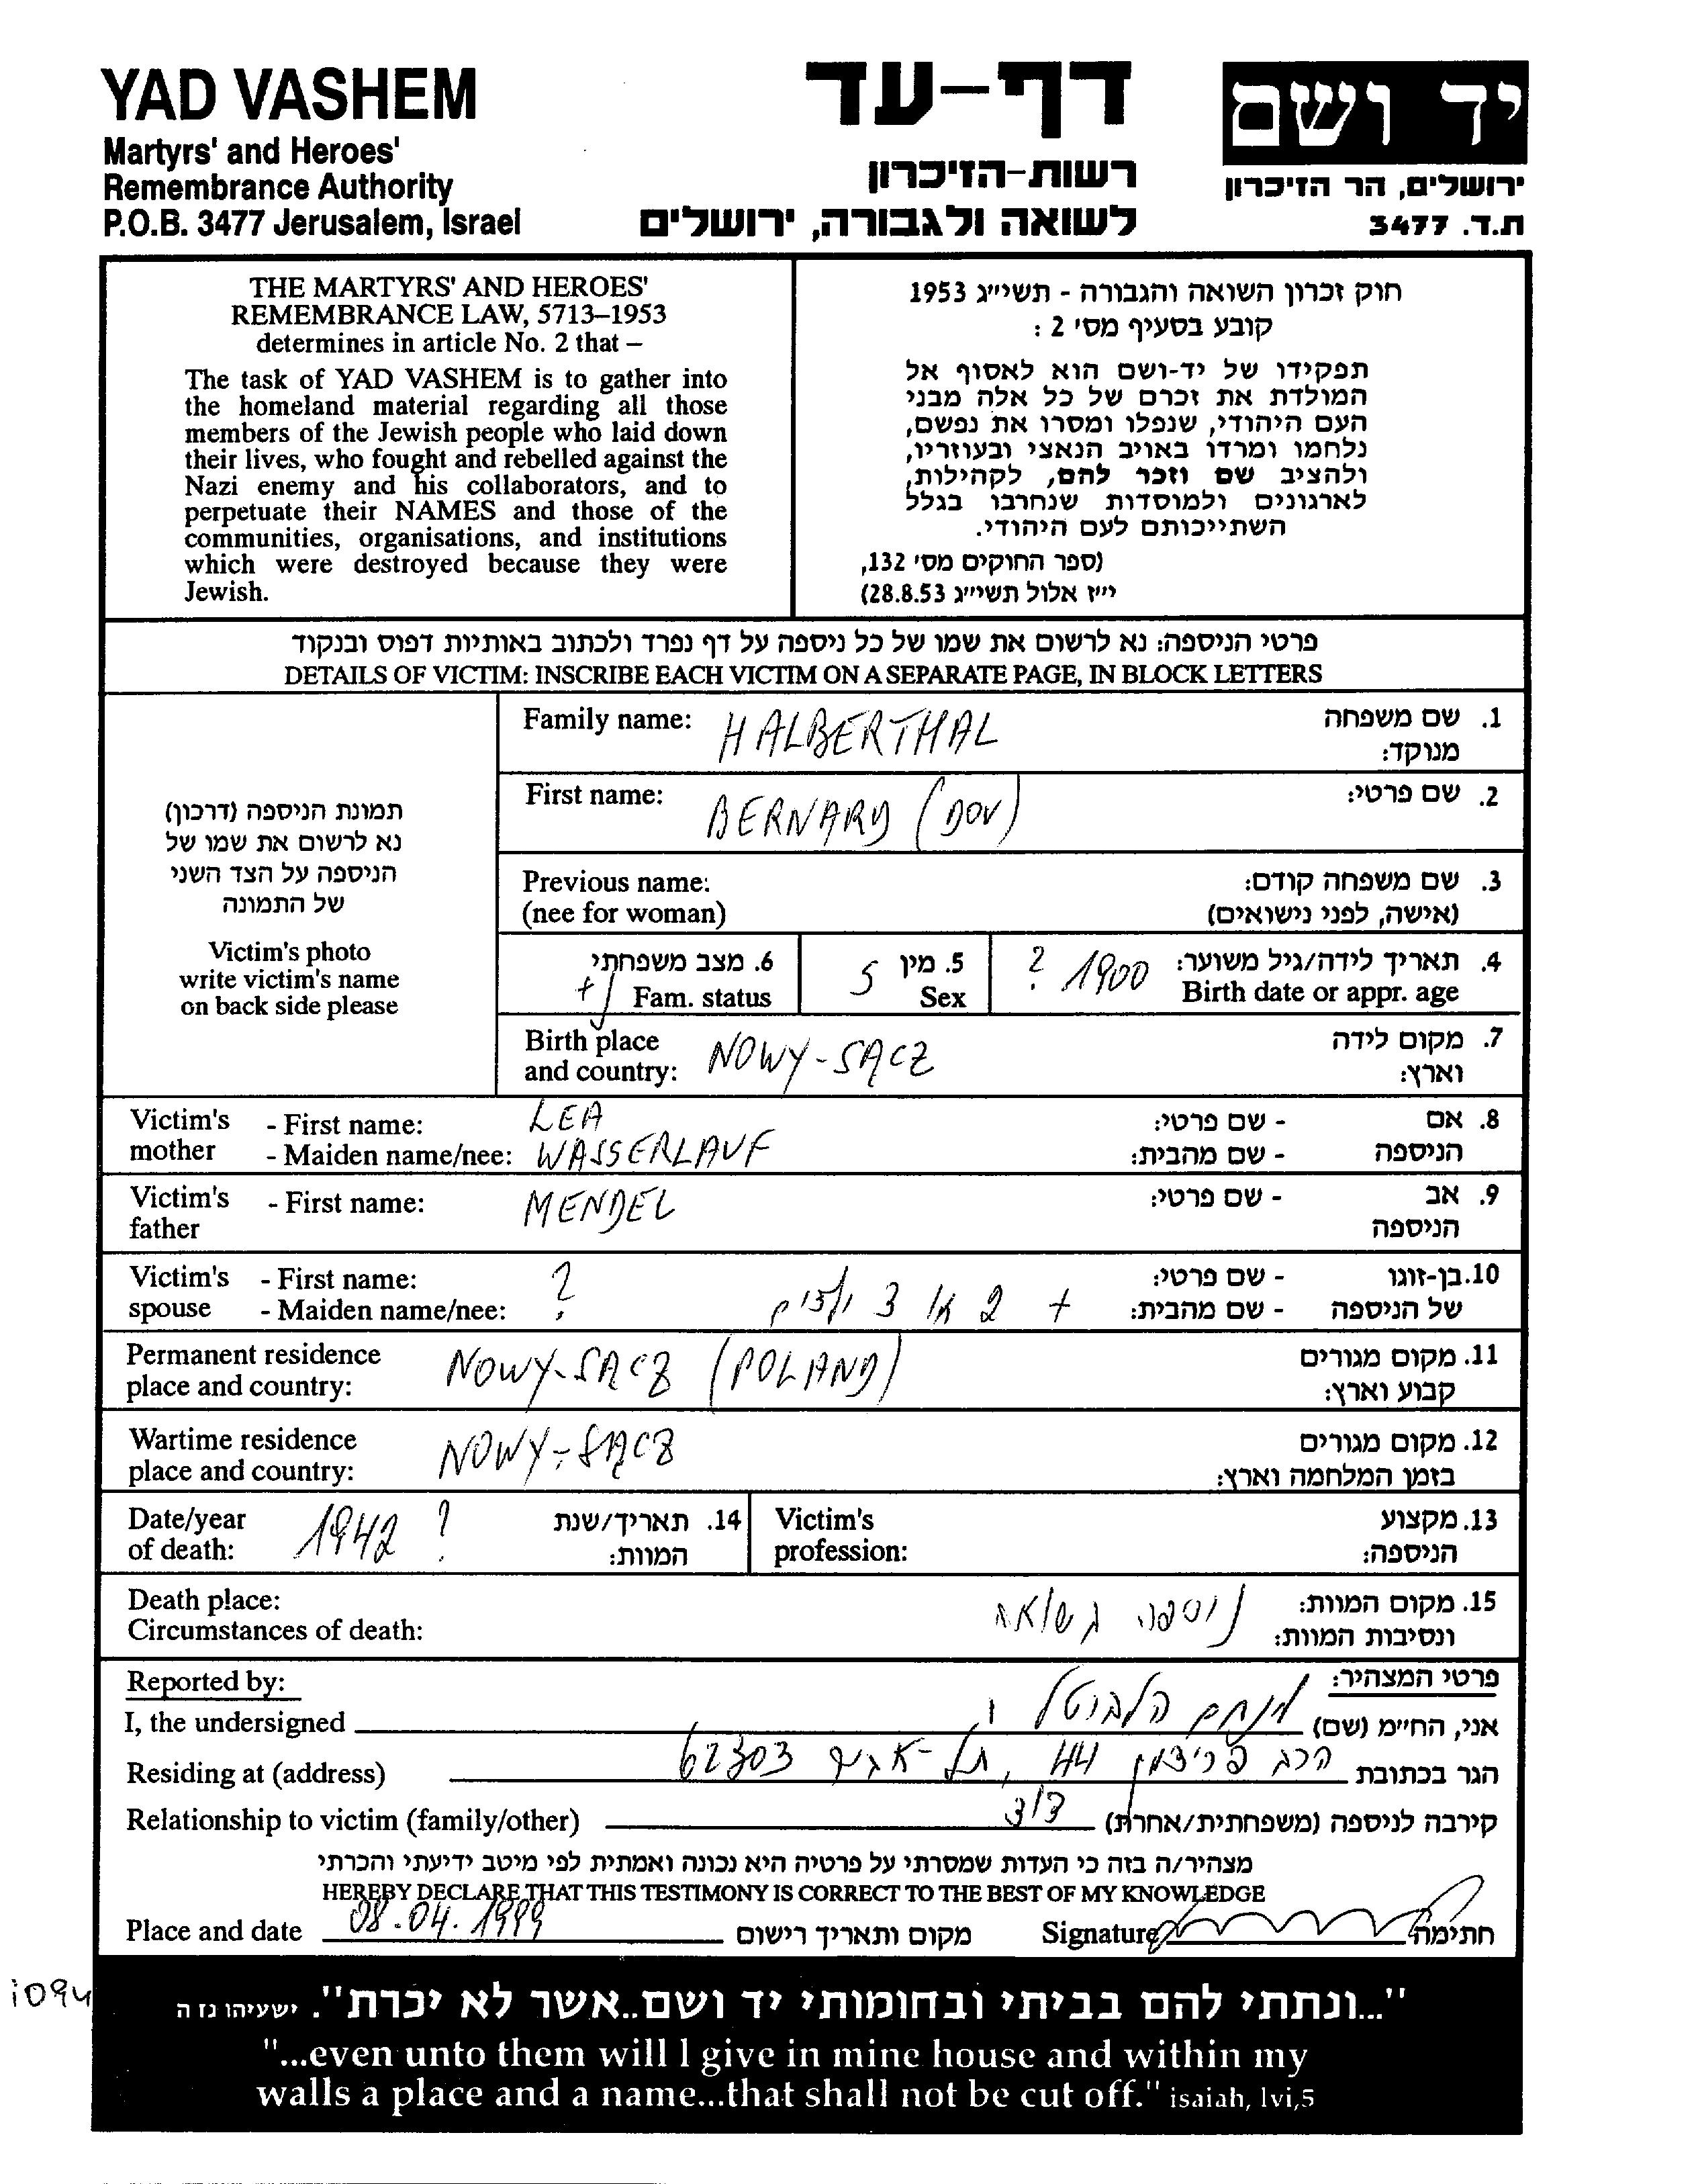 YAD VASHEM
Martyrs' and Heroes'
Remembrance Authority
P.O.B. 3477 Jerusalem, Israel
דף-עד
רשות-הזיכרון
לשואה ולגבורה, ירושלים
יד ושם
ירושלים, הר הזיכרון
ת.ד. 3477
THE MARTYRS' AND HEROES'
REMEMBRANCE LAW, 5713–1953
determines in article No. 2 that –
The task of YAD VASHEM is to gather into
the homeland material regarding all those
members of the Jewish people who laid down
their lives, who fought and rebelled against the
Nazi enemy and his collaborators, and to
perpetuate their NAMES and those of the
communities, organisations, and institutions
which were destroyed because they were
Jewish.
חוק זכרון השואה והגבורה - תשי״ג 1953
קובע בסעיף מס׳ 2 :
תפקידו של יד-ושם הוא לאסוף אל
המולדת את זכרם של כל אלה מבני
העם היהודי, שנפלו ומסרו את נפשם,
נלחמו ומרדו באויב הנאצי ובעוזריו,
ולהציב שם וזכר להם, לקהילות,
לארגונים ולמוסדות שנחרבו בגלל
השתייכותם לעם היהודי.
(ספר החוקים מס׳ 132,
י״ז אלול תשי״ג 28.8.53)
פרטי הניספה: נא לרשום את שמו של כל ניספה על דף נפרד ולכתוב באותיות דפוס ובנקוד
DETAILS OF VICTIM: INSCRIBE EACH VICTIM ON A SEPARATE PAGE, IN BLOCK LETTERS
תמונת הניספה (דרכון)
נא לרשום את שמו של
הניספה על הצד השני
של התמונה
Victim's photo
write victim's name
on back side please
Family name: HALBERTHAL 1. שם משפחה
מנוקד:
First name: BERNARD (DOV) 2. שם פרטי:
Previous name: 3. שם משפחה קודם:
(nee for woman) (אישה, לפני נישואים)
6. מצב משפחתי 5. מין ? 1900 4. תאריך לידה/גיל משוער:
Fam. status Sex Birth date or appr. age
Birth place NOWY-SĄCZ 7. מקום לידה
and country: וארץ:
Victim's - First name: LEA - שם פרטי: 8. אם
mother - Maiden name/nee: WASSERLAUF - שם מהבית: הניספה
Victim's - First name: MENDEL - שם פרטי: 9. אב
father הניספה
Victim's - First name: ? - שם פרטי: 10.בן-זוגו
spouse - Maiden name/nee: + 2 או 3 ילדים - שם מהבית: של הניספה
Permanent residence NOWY-SĄCZ (POLAND) 11. מקום מגורים
place and country: קבוע וארץ:
Wartime residence NOWY-SĄCZ 12. מקום מגורים
place and country: בזמן המלחמה וארץ:
Date/year 1942 ? 14. תאריך/שנת Victim's 13.מקצוע
of death: המוות: profession: הניספה:
Death place: ניספה בשואה 15. מקום המוות:
Circumstances of death: ונסיבות המוות:
Reported by: פרטי המצהיר:
I, the undersigned מנחם הלברטל אני, החי״מ (שם)
Residing at (address) הרב פרידמן 44, תל-אביב 62303 הגר בכתובת
Relationship to victim (family/other) דוד קירבה לניספה (משפחתית/אחרת)
מצהיר/ה בזה כי העדות שמסרתי על פרטיה היא נכונה ואמתית לפי מיטב ידיעתי והכרתי
HEREBY DECLARE THAT THIS TESTIMONY IS CORRECT TO THE BEST OF MY KNOWLEDGE
Place and date 08.04.1999 מקום ותאריך רישום Signature חתימה
1094
"...ונתתי להם בביתי ובחומותי יד ושם..אשר לא יכרת". ישעיהו נו ה
"...even unto them will I give in mine house and within my
walls a place and a name...that shall not be cut off." isaiah, lvi,5